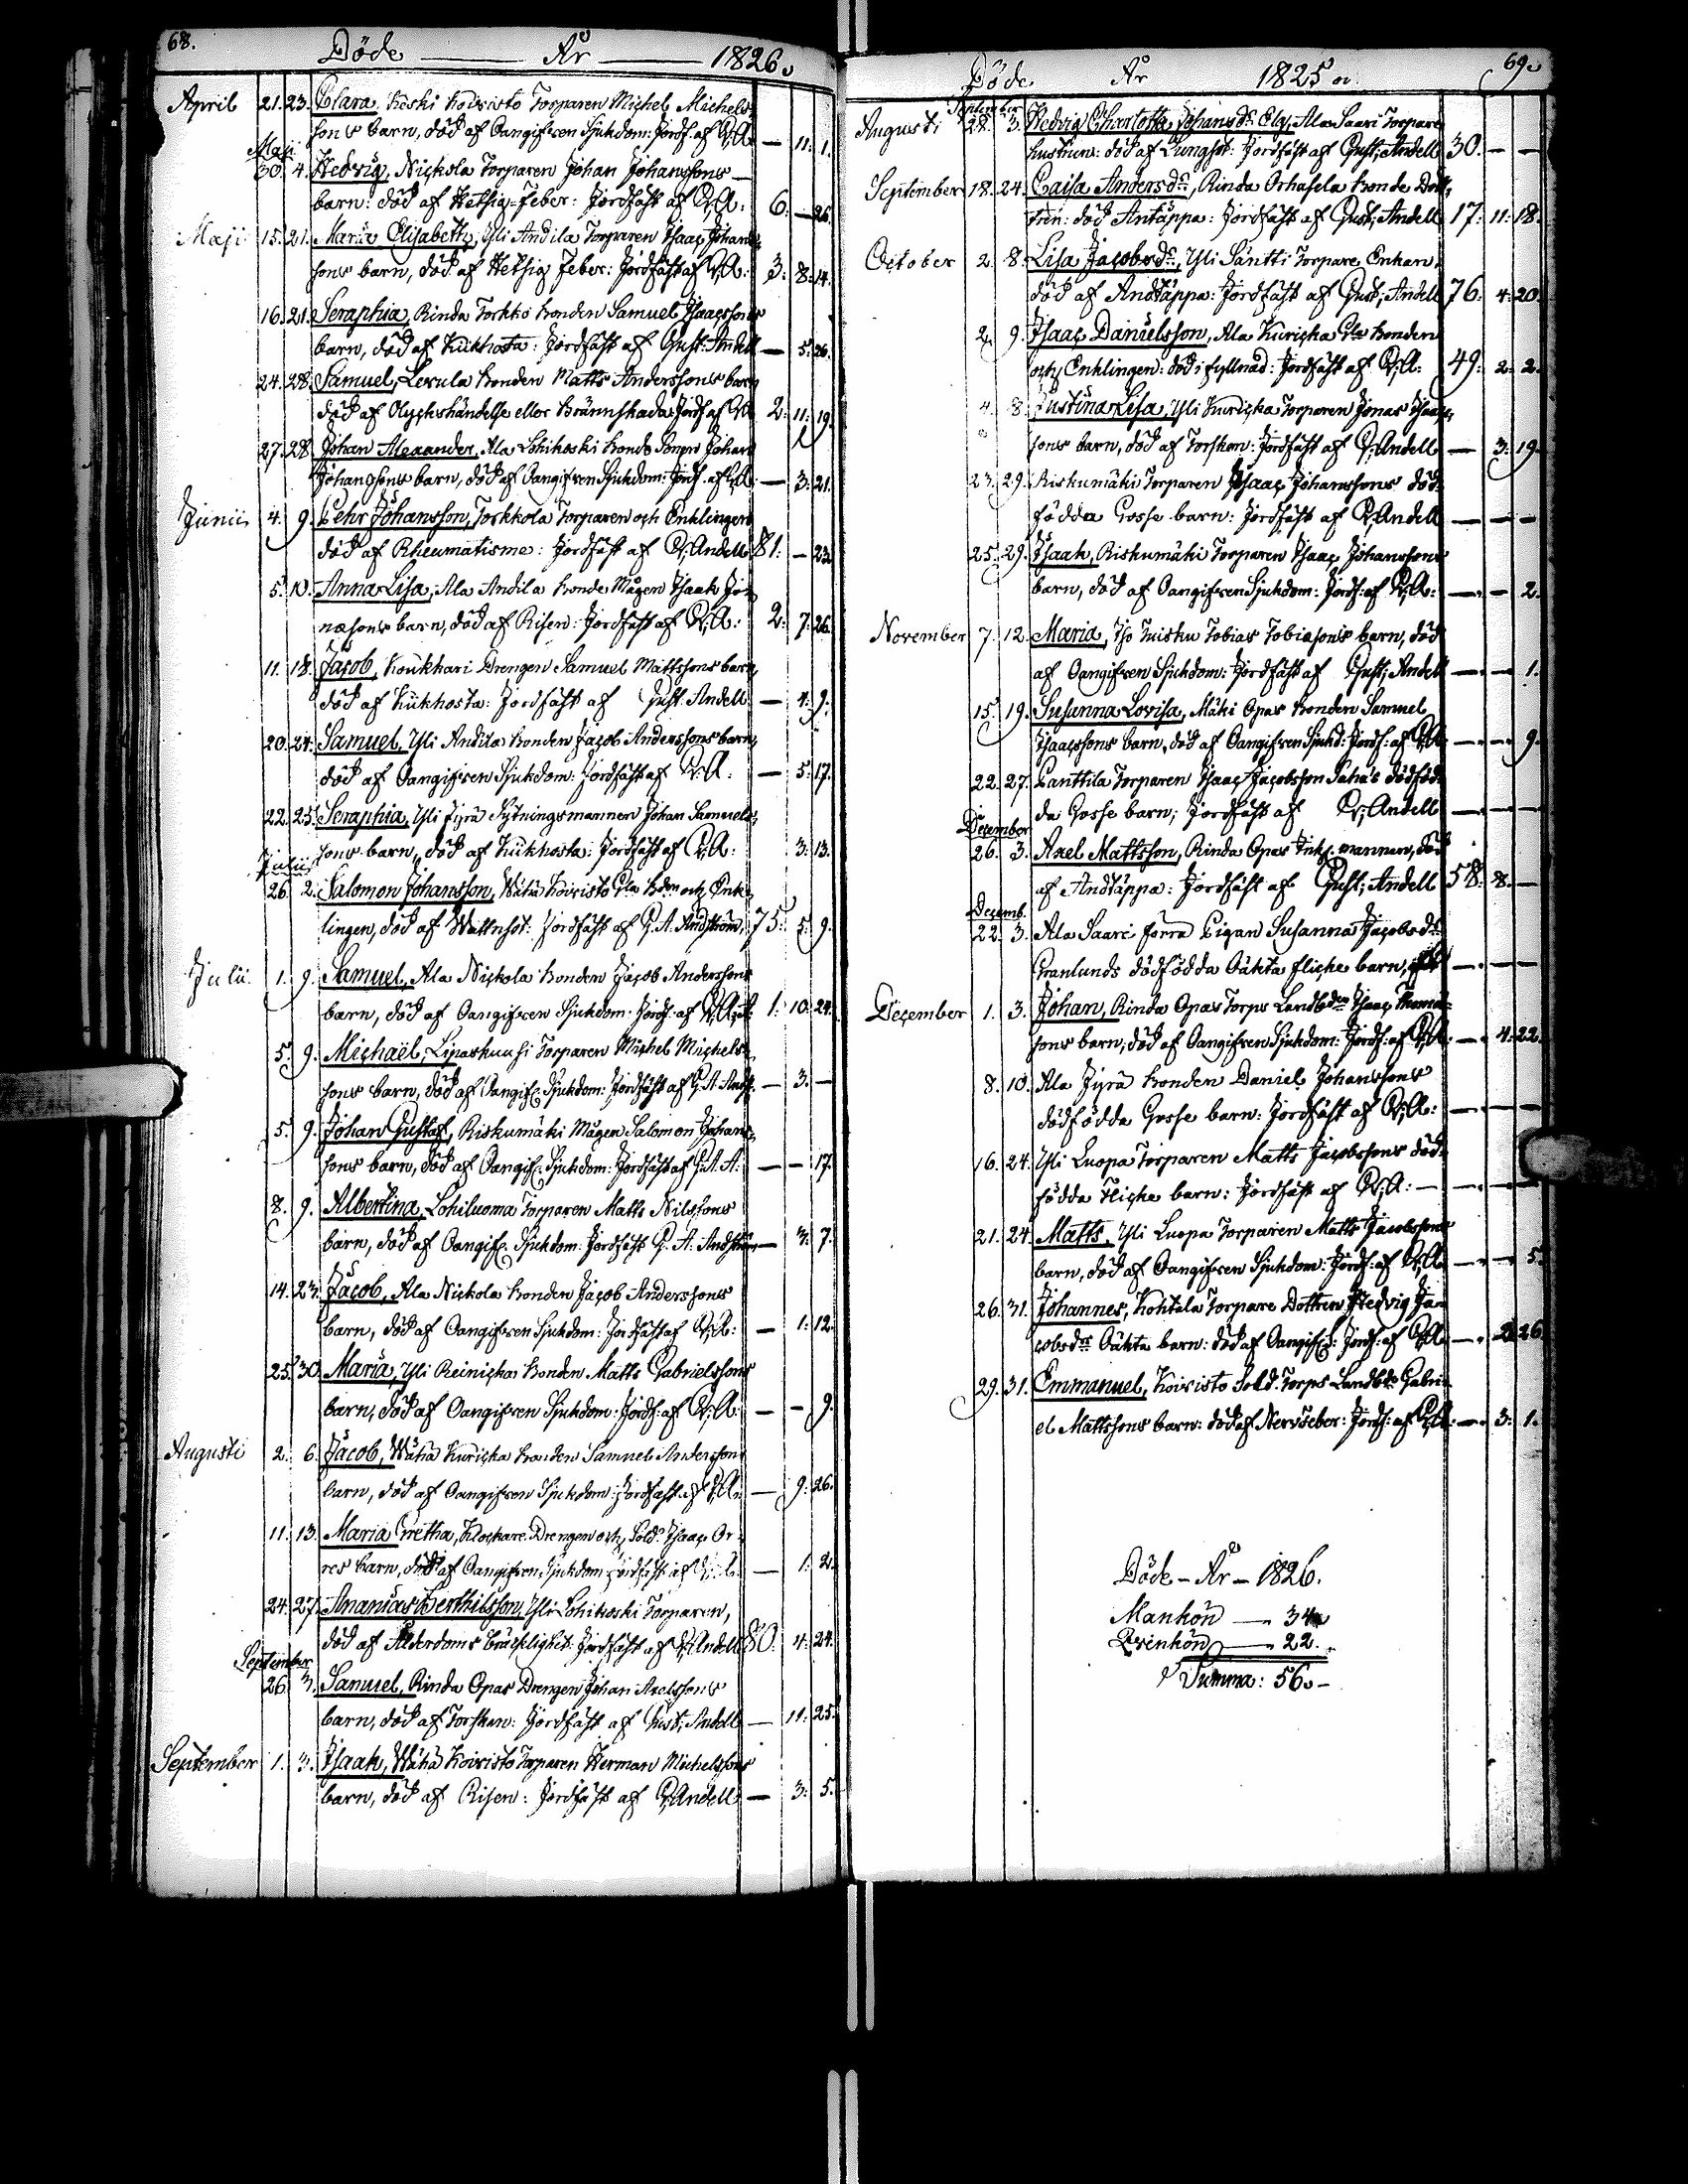 68.
Döde År 1826.
April 21. 23. Clara, Keski Koivisto Torparen Michel Michels-
sons barn, död af Oangifven Sjukdom: Jordf. af G;A. — 11. 1.
Maji
30. 4. Hedvig, Nickola Torparen Johan Johanssons
barn: död af Hetsig-Feber: Jordfäst af G;A: 6. — 26.
Maji 15. 21. Maria Elisabeth, Yli Andila Torparen Isaac Johans-
sons barn, död af Hetsig Feber: Jordfäst af G;A: 3: 8: 14.
16. 21. Seraphia, Rinda Torkko bonden Samuel Isaacssons
barn, död af Kikhosta: Jordfäst af Gust: Andell — 5: 26.
24. 28. Samuel, Lerula bonden Matts Anderssons barn
död af Olyckshändelse eller brännskada: Jordf. af GA 2: 11: 19.
27. 28. Johan Alexander, Ala Lohikoski bonde Sonen Johan
Johanssons barn, död af Oangifven Sjukdom: Jordf. af G;A. — 3: 21.
Junii 4. 9. Pehr Johansson, Torkkola Torparen och Enklingen
död af Rheumatisme: Jordfäst af G;Andell 81: — 23.
5. 10. Anna Lisa, Ala Andila bonde Mågen Isaak Jo-
næsons barn, död af Risen: Jordfäst af G;A: 2: 7: 26.
11. 18. Jacob, Koukkari Drengen Samuel Mattssons barn,
död af Kikhosta: Jordfäst af Gust: Andell. — 4: 9.
20. 24. Samuel, Yli Andila bonden Jacob Anderssons barn,
död af Oangifven Sjukdom: Jordfäst af G;A: — 5: 17.
22. 25. Seraphia, Yli Jyrä Sytningsmannen Johan Samuels-
sons barn, död af Kikhosta: Jordfäst af G;A: 3: 13.
Julii
26. 2. Salomon Johansson, Wähä Koivisto Gla bden och Enk-
lingen, död af Wattnsot: Jordfäst af G.A. Andström, 75: 5: 9.
Julii 1. 9. Samuel, Ala Nickola bonden Jacob Anderssons
barn, död af Oangifven Sjukdom: Jordf. af G;A: 1: 10: 24.
5. 9. Michaël, Liparkuusi Torparen Michel Michels-
sons barn, död af Oangif: Sjukdom: Jordfäst af G.A. Andst. — 3. —
5. 9. Johan Gustaf, Riskumäki Mågen Salomon Johans-
sons barn, död af Oangif: Sjukdom: Jordfäst af G.A.A: — — 17.
8. 9. Albertina, Lohiluoma Torparen Matts Nilssons
barn, död af Oangif: Sjukdom: Jordfäst G. A: Andström — 3: 7.
14. 23. Jacob, Ala Nickola bonden Jacob Anderssons
barn, död af Oangifven Sjukdom: Jordfäst af G;A: — 1: 12.
25. 30. Maria, Yli Reinicka bonden Matts Gabrielssons
barn, död af Oangifven Sjukdom: Jordf: af G;A: — — 9.
Augusti 2. 6. Jacob, Wähä Kuricka bonden Samuel Anderssons
barn, död af Oangifven Sjukdom: Jordfäst af G;A: — 9: 26.
11. 13. Maria Gretha, Klockare Drengen och Sold: Isaac Or-
res barn, död af Oangifven Sjukdom: Jordfäst af — 1: 2.
24. 27. Ananias Berthilsson, Yli Lohikoski Torparen,
död af Ålderdoms bräcklighet: Jordfäst af G;Andell 80. 4: 24.
September
26. 3. Samuel, Rinda Opas Drengen Johan Axelssons
barn, död af Torsken: Jordfäst af Gust; Andell — 11: 25.
September 1. 3. Isaak, Wähä Koivisto Torparen Herman Michelssons
barn, död af Risen: Jordfäst af G;Andell — 3: 5.
69.
Döde År 1825
September
Augusti 28. 3. Hedvig Charlotta Johansdr Elg, Ala Saari Torpare
hustrun: död af Lungsot: Jordfäst af Gust; Andell 30. — —
September 18. 24. Caisa Andersdr, Rinda Orhasela bonde Dott-
tren: död Antäppa: Jordfäst af Gust; Andell 17: 11: 18.
October 2. 8. Lisa Jacobsdr, Yli Säntti Torpare Enkan,
död af Andtäppa: Jordfäst af Gust; Andell 76: 4: 20.
2. 9. Isaac Danielsson, Ala Kuricka Gla bonden
och Enklingen: död i fyllnad: Jordfäst af G;A: 49: 2: 2.
4. 8. Justina Lisa, Yli Kuricka Torparen Jonas Isaacs-
sons barn, död af Torsken: Jordfäst af G;Andell — 3: 19.
23. 29. Riskumäki Torparen Isaac Johanssons död-
födda Gosse barn: Jordfäst af G;Andell — — —
25. 29. Isaak, Riskumäki Torparen Isaac Johanssons
barn, död af Oangifven Sjukdom: Jordf: af G;A: — — 2.
November 7. 12. Maria, Iso Tuisku Tobias Tobiæsons barn, död
af Oangifven Sjukdom: Jordfäst af Gust; Andell — — 1.
15. 19. Susanna Lovisa, Mäki Opas bonden Samuel
Isaacssons barn, död af Oangifven Sjukd: Jordf: af G;A: — — 9.
22. 27. Panttila Torparen Isaac Jacobsson Saha's dödföd-
da Gosse barn; Jordfäst af G;Andell — — —
December
26. 3. Axel Mattsson, Rinda Opas Inh. mannen, död
af Andtäppa: Jordfäst af Gust; Andell 58: 8. —
Decemb.
22. 3. Ala Saari förra Pigan Susanna Jacobsdr
Granlunds dödfödda Oäkta flicke barn, — — —
December 1. 3. Johan, Rinda Opas Torps Landbden Isaac Thomæ-
sons barn; död af Oangifven Sjukdom: Jordf: af G;A: — 4: 22.
8. 10. Ala Jyrä bonden Daniel Johanssons
dödfödda Gosse barn: Jordfäst af G;A: — — —
16. 24. Yli Luopa Torparen Matts Jacobssons död-
födda Flicke barn: Jordfäst af G;A: — — —
21. 24. Matts, Yli Luopa Torparen Matts Jacobssons
barn, död af Oangifven Sjukdom: Jordf: af G;A: — — 5.
26. 31. Johannes, Kohtala Torpare Dottren Hedvig Ja-
cobsdrs Oäkta barn: död af Oangif: Jordf: af G;A: — 26.
29. 31. Emmanuel, Koivisto Sold. Torps Landbds Gabri-
el Mattssons barn: död af Nervfeber: Jordf: af G;A: — 3: 1.
Döde – År – 1826.
Mankön — 34
Qvinkön — 22.
Summa: 56. –